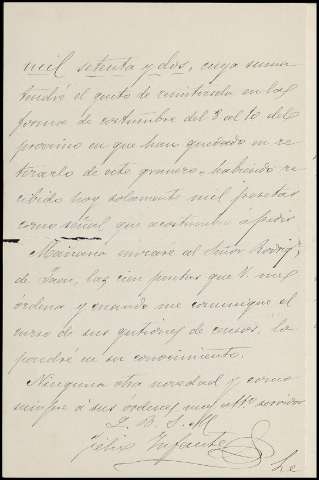 mil setenta y dos, cuya suma
tendré el gusto de remitirla en la
forma de costumbre del 8 al 10 del
proximo en que han quedado en re
tirarlo de este granero habiendo re
cibido hoy solamente mil pesetas
como señal que acostumbra a pedir
Mañana enviaré al Señor Rodrigz
de las cien pesetas que V. me
órdena y cuando me comunique el
curso de sus gestiones de censos, la
pondré en su conocimiento.
Ninguna otra novedad y como
siempre á sus órdenes su servidor
Q. B. S. M
Felix Infante